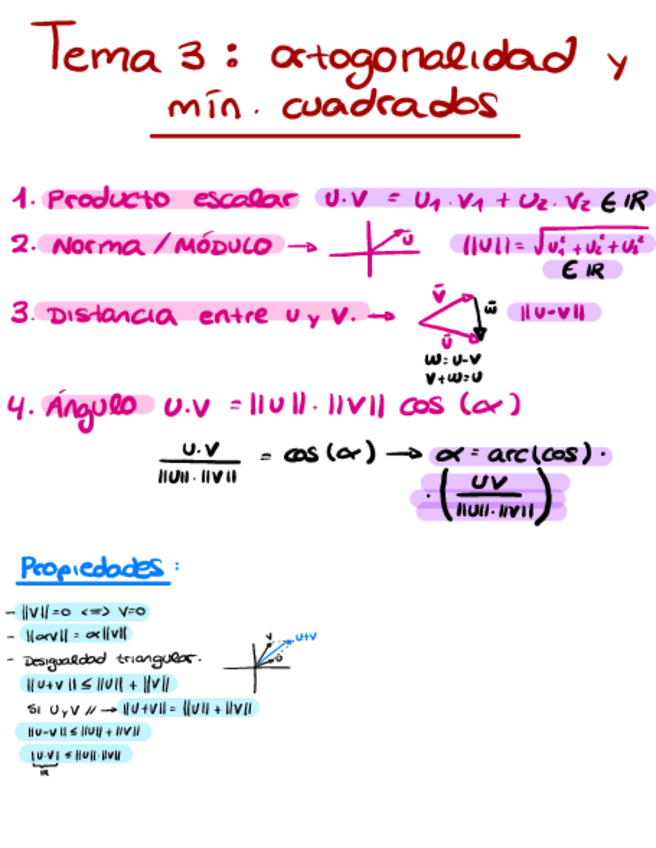 Tema 3: ortogonalidad y
mín. cuadrados
1. Producto escalar u·v = u₁·v₁ + u₂·v₂ ∈ ℝ
2. Norma / MÓDULO → ū ||u|| = √(u₁² + u₂² + u₃²)
∈ ℝ
3. Distancia entre u y v. → v̄ w̄ ū ||u-v||
w = u-v
v+w=u
4. Ángulo u·v = ||u||·||v|| cos (α)
u·v / ||u||·||v|| = cos(α) → α = arc(cos)·
·(uv / ||u||·||v||)
Propiedades:
- ||v||=0 <=> v=0
- ||αv|| = α||v||
- Desigualdad triangular.
v u+v u
||u+v|| ≤ ||u|| + ||v||
Si u y v // → ||u+v|| = ||u|| + ||v||
||u-v|| ≤ ||u|| + ||v||
|u·v| ≤ ||u||·||v||
ℝ